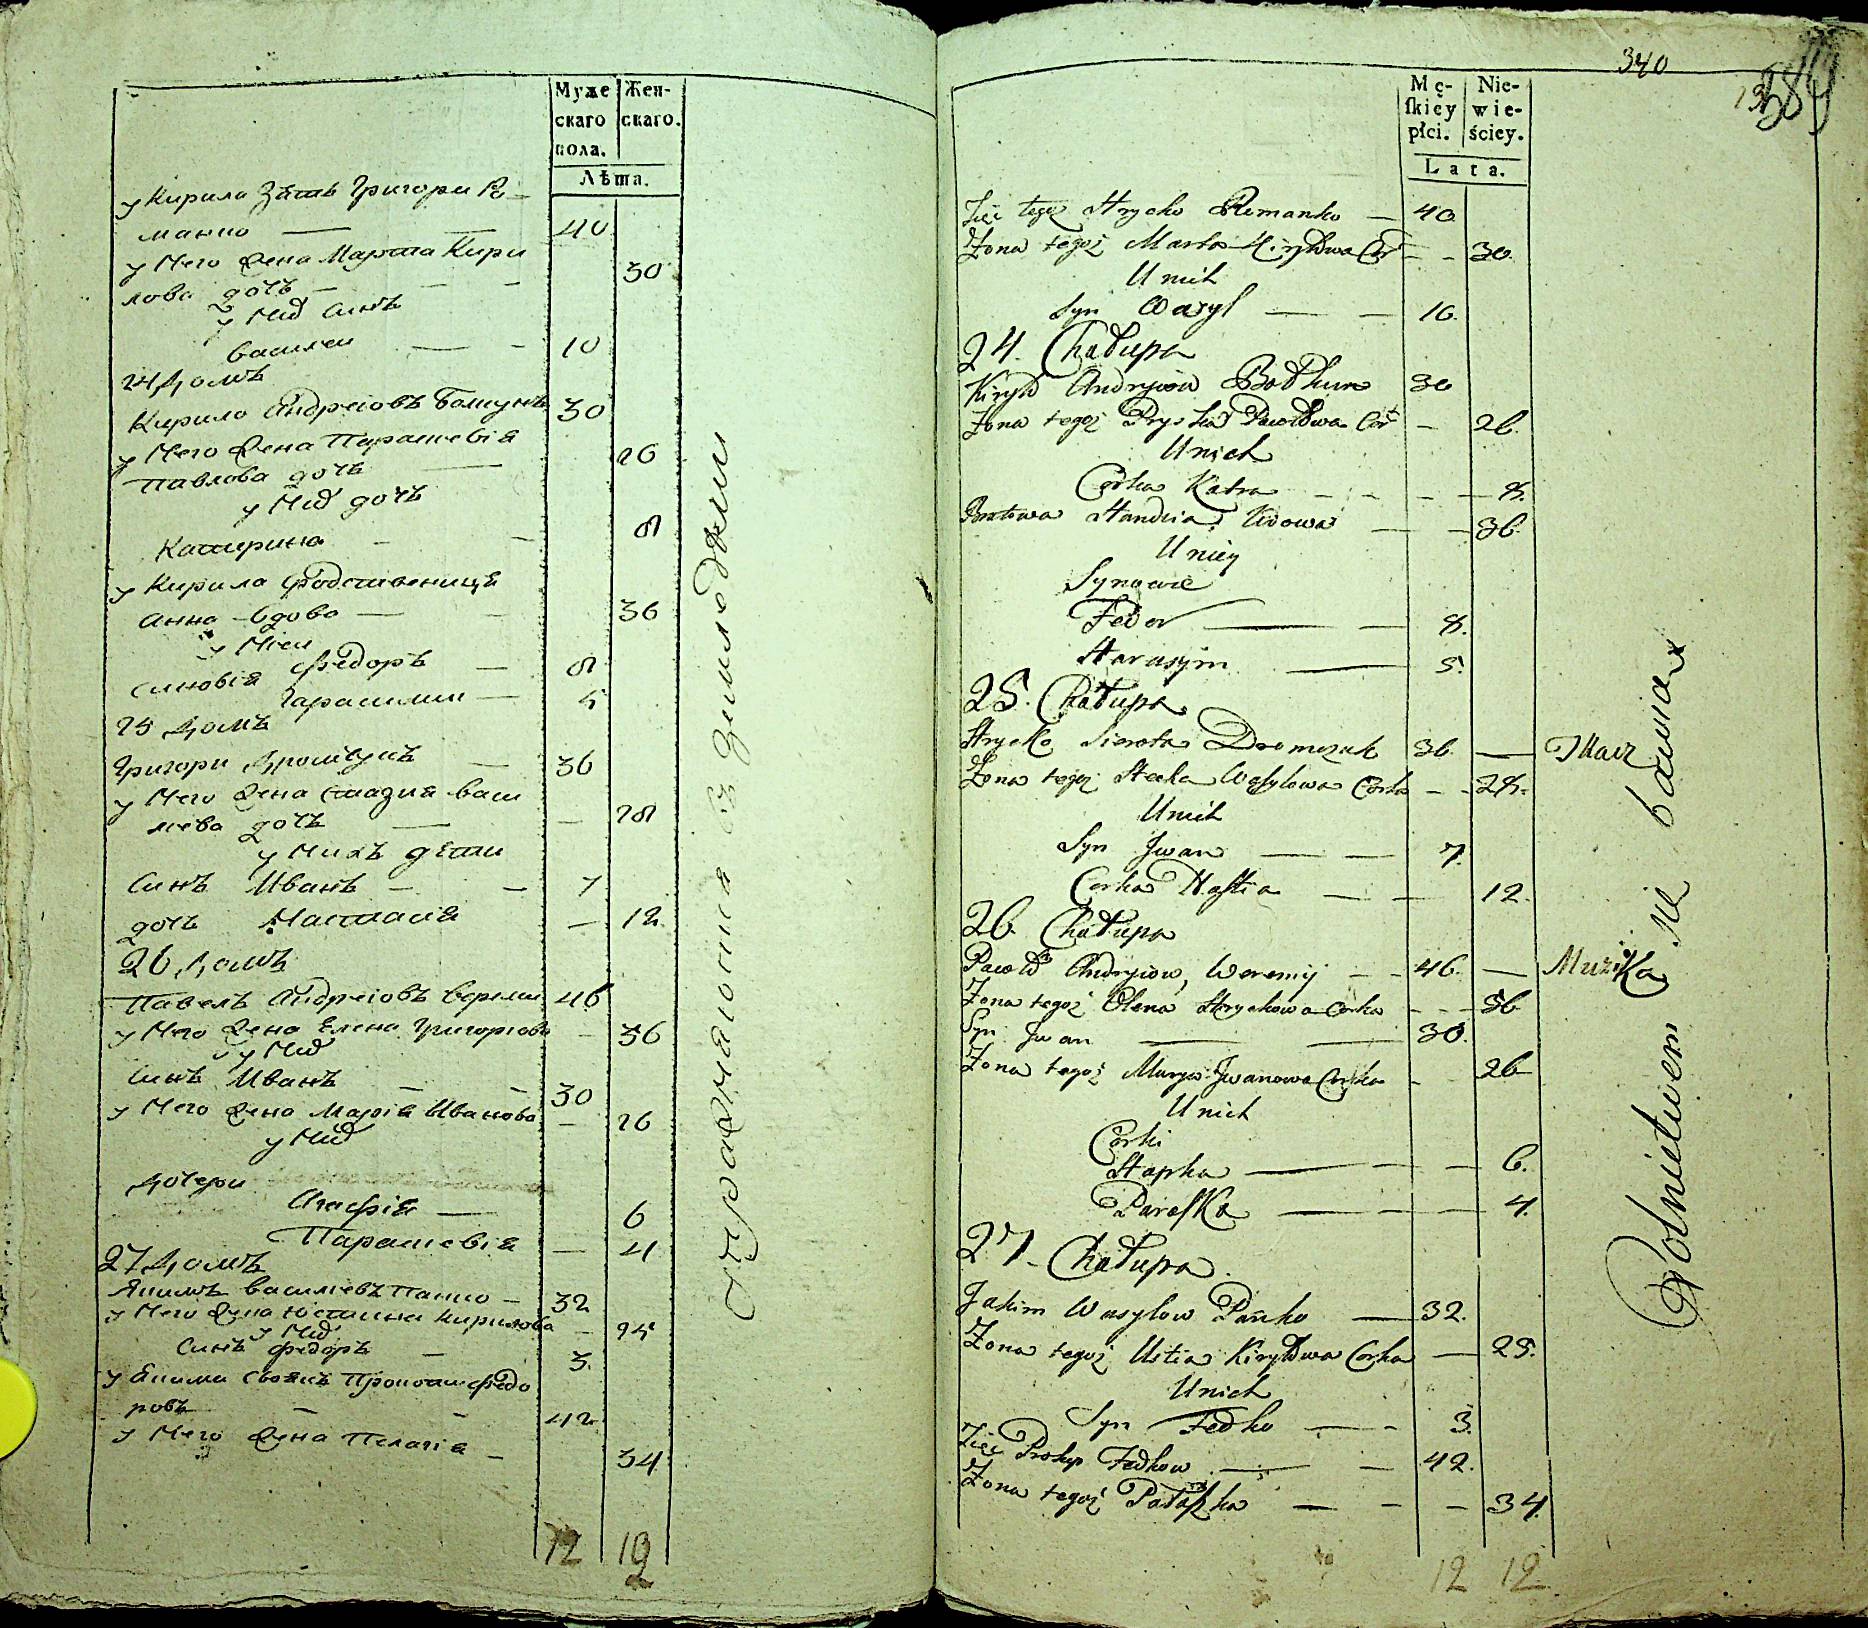 Муже
скаго
пола.
Жен-
скаго.
Лѣта.
у Кирила Зѣть Григори Ро
манко — — 40
у Него Жена Марта Кири
лова дочь — 30
у Них Синъ
Василеи — 10
24 Домъ
Кирило Андреіовъ Болкунъ 30
у Него Жена Параскевія
Павлова дочь — 26
у Них дочъ
Катерина — 8
у Кирила Родственница
Анна Вдова — 36
у Ніеи
Синовія Федоръ — 8
Гарасими — 5
25 Домъ
Григори 36
у Него Жена Стахия Васи
лиева дочъ — 28
у Нихъ дети
Синъ Иванъ — 7
дочъ Настасия — 12
26 Домъ
Павелъ Андреіовъ Вереми 46
у Него Жена Елена Григориова — 36
у Них
Синъ Иванъ — 30
у Него Жена Марія Иванова — 26
у Них
Дочери
Агафія — 6
Парасковія — 4
27 Домъ
Якимъ Василиевъ Панко — 32
у Него Жена Юстина Кирилова — 25
у Них
Синъ Федоръ — 3.
у Якима Своякъ Прокопи Федо
ровъ — 42
у Него Жена Пелагія — 34
12 12
Упражняются въ Земледелии
340
Mę-
ſkiey
płci.
Nie-
wie-
ściey.
Lata.
Zięć tegoż Hrycko Romanko — 40
Żona tegoż Marta Kiryłowa Cor — 30.
U nich
Syn Wasyl — 10.
24. Chałupa
Kiryło Andryiow Bołkun 30
Żona tegoż Pryska Pawłowa Cor — 26.
U nich
Corka Katra — 8.
Bratowa Handzia Wdowa — 36.
U niey
Synowie
Fedor — 8.
Harasym — 5.
25. Chałupa
Hrycko Sierota 36. — Tkacz
Żona tegoż Stecka Wasylowa Corka — 28.
U nich
Syn Jwan — 7.
Corka Nastia — 12.
26 Chałupa
Paweł Andryiow Weremij — 46. — Muzyka
Żona tegoż Olena Hryckowa Corka — 36
Syn Jwan — 30.
Żona tegoż Marya Jwanowa Corka — 26
U nich
Corki
Hapka — 6.
Paraſka — 4.
27. Chałupa
Jakim Wasylow Pańko — 32.
Żona tegoż Ustia Kiryłowa Corka — 25.
U nich
Syn Fedko — 3.
Zięć Prokop Fedkow — 42.
Żona tegoż Pałaszka — 34.
12 12
Rolnictwem się bawią